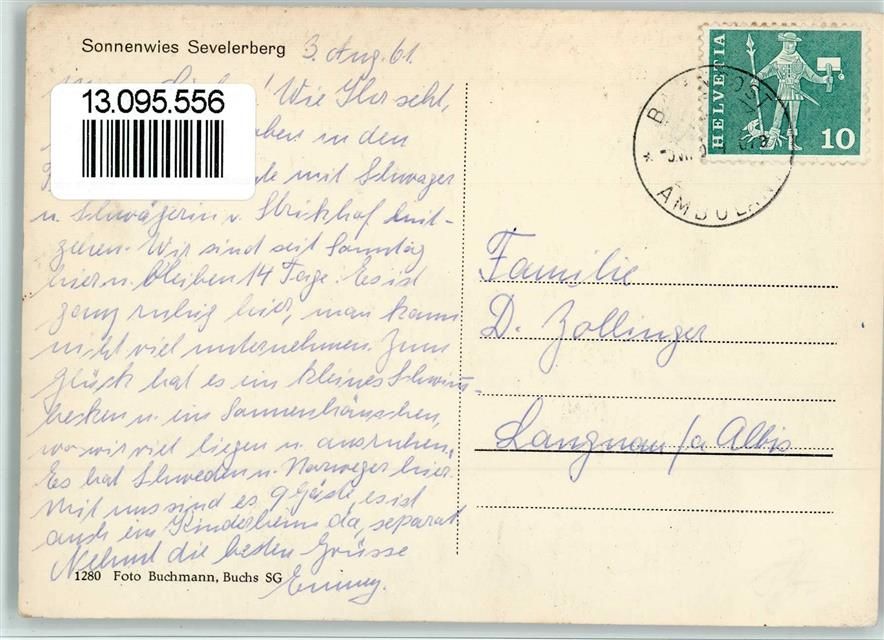 Sonnenwies Sevelerberg 3. Aug. 61.
! Wie Ihr seht,
13.095.556
oben in den
mit Schwager
u. Schwägerin v. Strickhof
Wir sind seit Sonntag
hier u. bleiben 14 Tage. Es ist
ganz ruhig hier, man kann
nicht viel unternehmen. Zum
Glück hat es ein kleines Schwimm-
becken u. ein Sonnenhäuschen,
wo wir viel liegen u. ausruhen.
Es hat Schweden u. Norweger hier.
Mit uns sind es 9 Gäste, es ist
auch ein Kinderheim da, separat.
Nehmt die besten Grüsse
Emmy.
1280 Foto Buchmann, Buchs SG
HELVETIA
10
AMBULANT
Familie
D. Zollinger
Langnau /a Albis